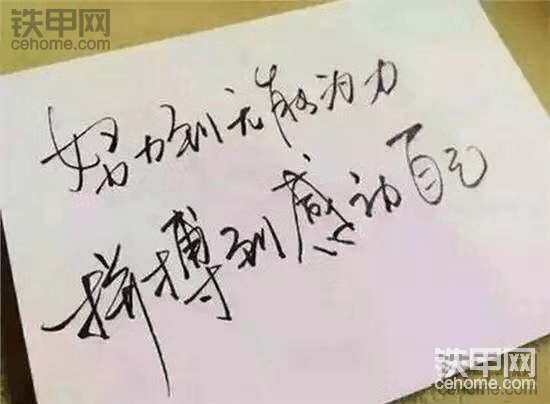 铁甲网
cehome.com
努力到无能为力
拼搏到感动自己
铁甲网
cehome.com